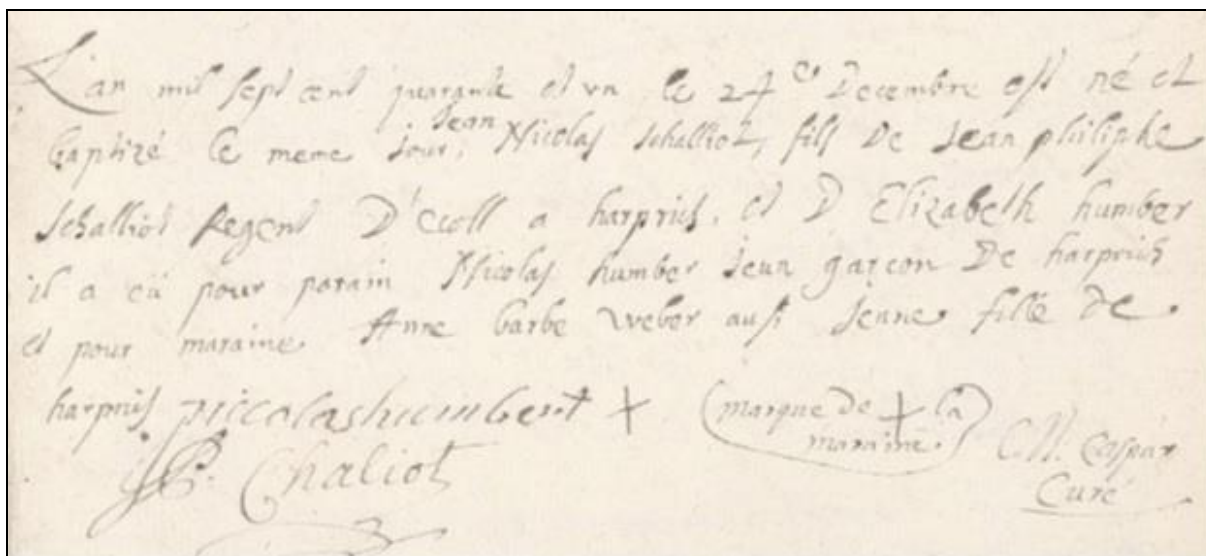 L'an mil sept cent quarante et vn le 24e Decembre est né et
baptizé le meme jour, Jean Nicolas Schalliot, fils De Jean philiphe
Schalliot Regent D'ecoll a harprich, et D Elizabeth humber
il a eü pour parain Nicolas humber Jeun garçon De harprich
et pour maraine Anne barbe Weber ausi Jenne fille de
harprich nicolashumbert + (marque de + la
maraine.)
JP. Chaliot
Caspar
Curé